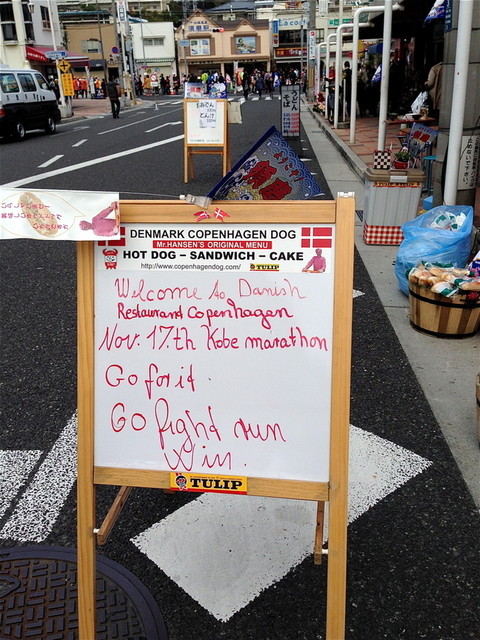 DENMARK COPENHAGEN DOG
Mr.HANSEN'S ORIGINAL MENU
HOT DOG – SANDWICH – CAKE
http://www.copenhagendog.com/ TULIP
Welcome to Danish
Restaurand Copenhagen
Nov. 17.th Kobe marathon
Go for it.
Go fight run
Win.
TULIP